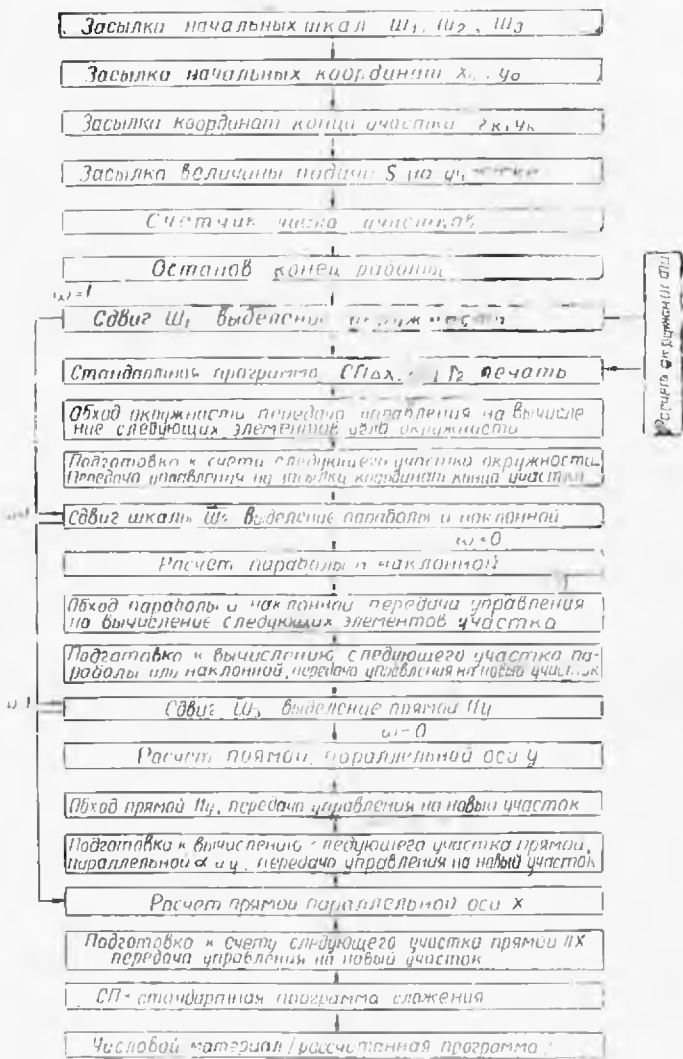 Засылка начальных шкал Ш1, Ш2, Ш3
Засылка начальных координат x₀, y₀
Засылка координат конца участка xк, yк
Засылка величины подачи S на участке
Счетчик числа участков
Останов конец работы
ω = 1
Сдвиг Ш1 выделение окружности
Расчет окружности
Стандартная программа СПΔx, Г2 печать
Обход окружности передача управления на вычисле
ние следующих элементов окружности
Подготовка к счету следующего участка окружности
Передача управления на засылку координат конца участка
Сдвиг шкалы Ш2 выделение параболы и наклонной
ω = 0
Расчет параболы и наклонной
Обход параболы и наклонной передача управления
на вычисление следующих элементов участка
Подготовка к вычислению следующего участка па-
раболы или наклонной, передача управления на новый участок
Сдвиг Ш3 выделение прямой IIy
ω = 0
Расчет прямой, параллельной оси y
Обход прямой IIy, передача управления на новый участок
Подготовка к вычислению следующего участка прямой,
параллельной оси y, передача управления на новый участок
Расчет прямой параллельной оси x
Подготовка к счету следующего участка прямой IIX
передача управления на новый участок
СП-стандартная программа сложения
Числовой материал/рассчитанная программа/